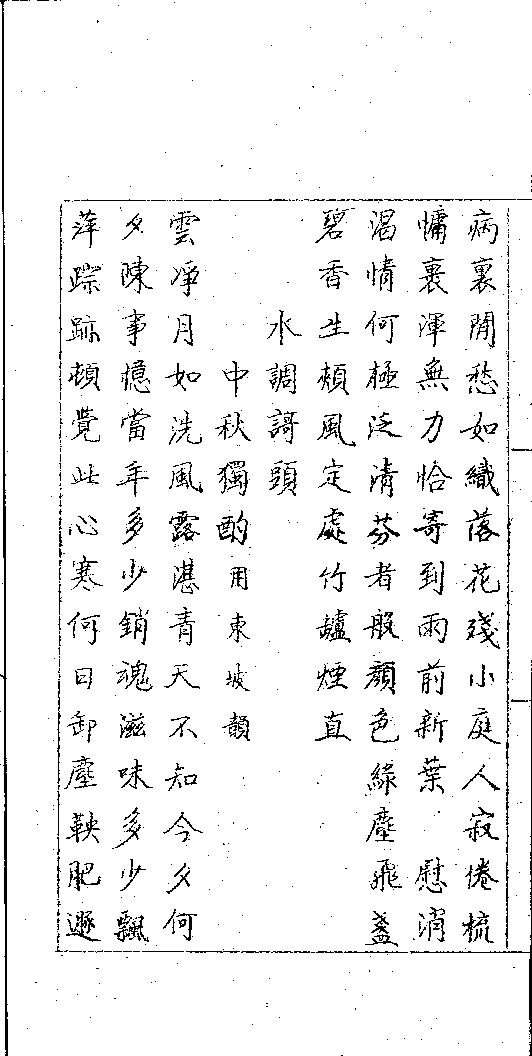 病裏閒愁如織落花殘小庭人寂倦梳
慵裹渾無力恰寄到雨前新葉　慰消
渴情何極泛清芬者般顏色綠塵飛盞
碧香生頰風定處竹罏煙直
水調謌頭
中秋獨酌用東坡韻
雲凈月如洗風露湛青天不知今夕何
夕陳事憶當年多少銷魂滋味多少飄
萍踪跡頓覺此心寒何日卸塵鞅肥遯